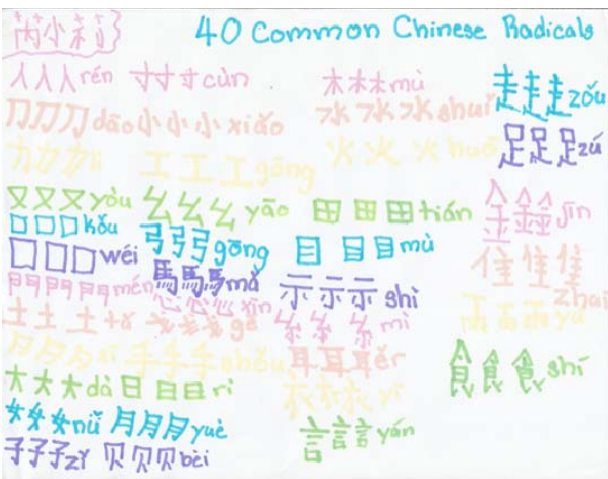 芮小莉} 40 Common Chinese Radicals
人人人 rén 寸寸寸 cùn 木木木 mù 走走走 zǒu
刀刀刀 dāo 小小小 xiǎo 水水水 shuǐ 足足足 zú
力力力 lì 工工工 gōng 火火火 huǒ
又又又 yòu 幺幺幺 yāo 田田田 tián 金金金 jīn
口口口 kǒu 弓弓弓 gōng 目目目 mù
囗囗囗 wéi 馬馬馬 mǎ 示示示 shì 隹隹隹 zhai
門門門 mén 心心心 xīn 糸糸糸 mì 雨雨雨 yǔ
土土土 tǔ 戈戈戈 gē
夕夕夕 xī 手手手 shǒu 耳耳耳 ěr 食食食 shí
大大大 dà 日日日 rì 衣衣衣 yī
女女女 nǚ 月月月 yuè 言言言 yán
子子子 zǐ 贝贝贝 bèi